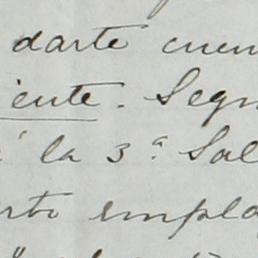 darte cuen
iente. Segu
la 3ª Sal
rto emplo